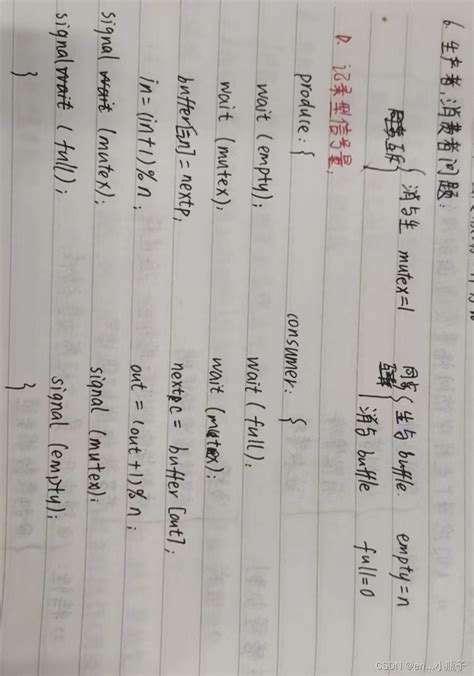 6. 生产者,消费者问题:
互斥 { 消与生 mutex=1
同步 { 生与buffle. empty=n
消与buffle full=0
①. 记录型信号量;
produce: { consumer: {
wait (empty); wait (full).
wait (mutex); wait (mutex);
buffer[in]=nextp, nextpc = buffer [out];
in=(in+1)%n; out = (out+1)%n;
signal (mutex); signal (mutex);
signal (full); signal (empty);
} }
CSDN @en...小瓶子